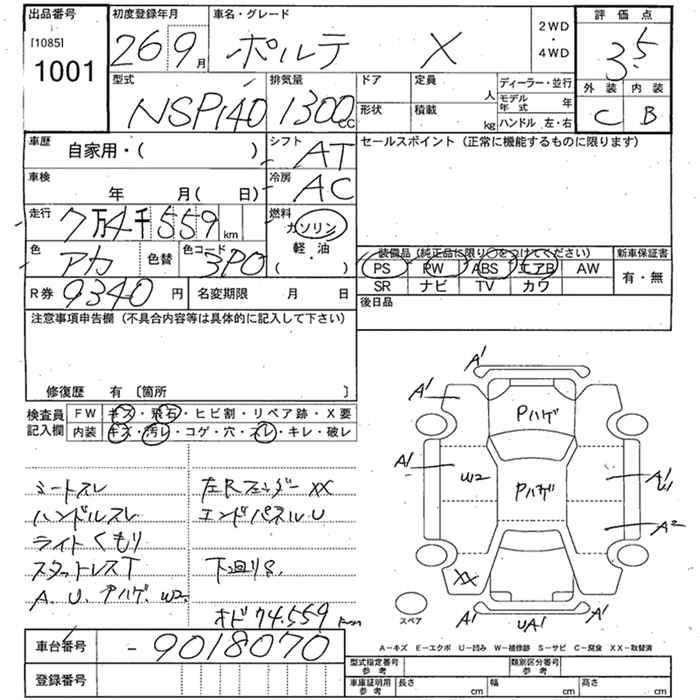 出品番号
[1085]
1001
初度登録年月
26 9月
車名・グレード
ポルテ X
2WD
・
4WD
評価点
3.5
外装 内装
C B
型式
NSP140
排気量
1300cc
ドア
定員
人
形状
積載
kg
ディーラー・並行
モデル年式 年
ハンドル 左・右
車歴
自家用・( )
シフト
AT
セールスポイント (正常に機能するものに限ります)
車検
年 月( 日)
冷房
AC
走行
7万4千559km
燃料
ガソリン
軽・油
・
( )
色
アカ
色替
色コード
3P0
装備品 (純正品に限り○をつけてください)
新車保証書
PS PW ABS エアB AW
有・無
SR ナビ TV カワ
R券 9340 円
名変期限 月 日
後日品
注意事項申告欄 (不具合内容等は具体的に記入して下さい)
修復歴 有 〔箇所 〕
検査員記入欄
FW キズ・飛石・ヒビ割・リペア跡・X要
内装 キズ・汚レ・コゲ・穴・スレ・キレ・破レ
シートスレ
ハンドルスレ
ライトくもり
スタットレスT
A.U.Pハゲ.W2.
左Rフェンダー XX
エンドパネルU
下廻りS.
オド 74.559km
A1
A1
A1
Pハゲ
W2
Pハゲ
A1
U1
A2
XX
スペア
A1
UA1
A1
車台番号 - 9018070
登録番号
A-キズ E-エクボ U-凹み W-補修跡 S-サビ C-腐食 XX-取替済
型式指定番号
参考
類別区分番号
参考
車庫証明用
参考
長さ cm
幅 cm
高さ cm